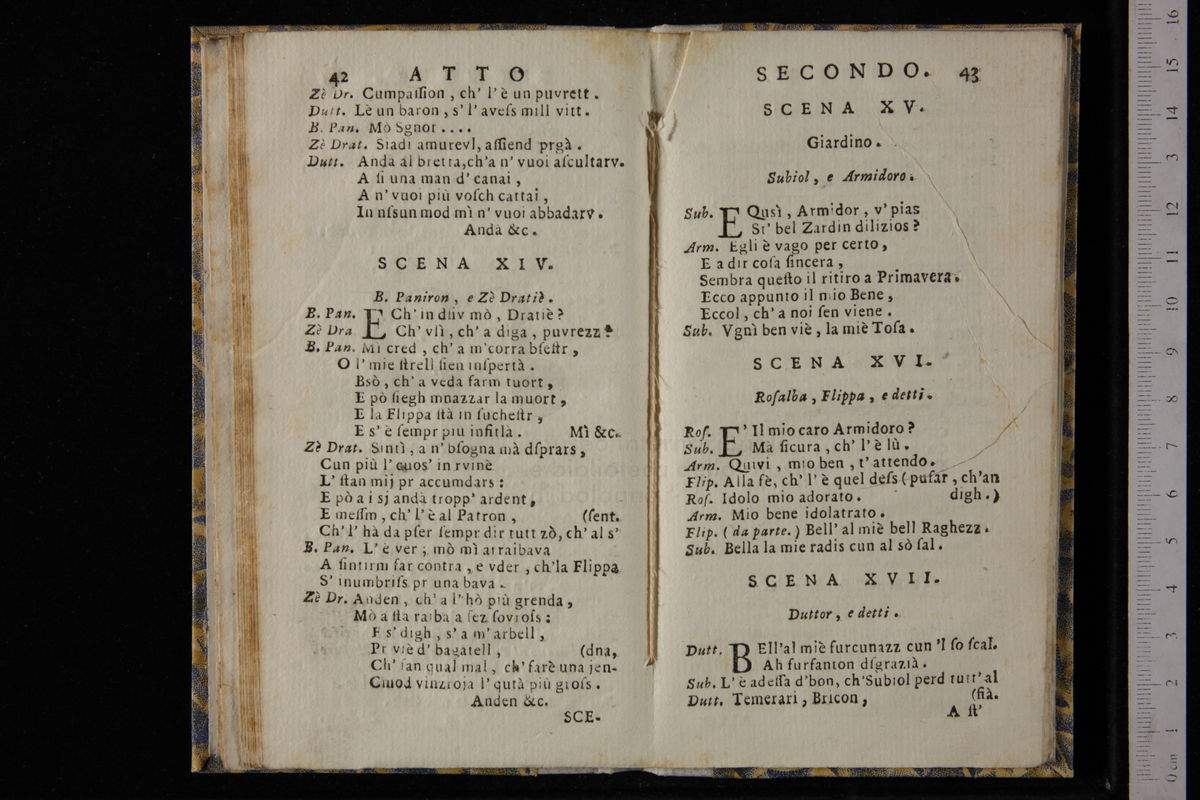 42 ATTO
Zè Dr. Cumpaſſion , ch' l'è un puvrett .
Dutt. Lè un baron , s' l' aveſs mill vitt .
B. Pan. Mò Sgnor . . . .
Zè Drat. Siadi amurevl, aſſiend prgà .
Dutt. Anda al bretta,ch'a n' vuoi aſcultarv.
A ſi una man d' canai ,
A n' vuoi più voſch cattai ,
In nſsun mod mì n' vuoi abbadarv .
Andà &c .
SCENA XIV.
B. Paniron , e Zè Dratiè .
B. Pan. ECh' in diiv mò , Dratiè ?
Zè Dra Ch' vlì , ch' a diga , puvrezz
B. Pan. Mì cred , ch' a m'corra bſeſtr ,
O l' mie ſtrell ſien inſpertà .
Bsò , ch' a veda farm tuort ,
E pò ſiegh mnazzar la muort ,
E la Flippa ſtà in fucheſtr ,
E s' è ſempr più inſitlà . Mì &c.
Zè Drat. Sintì , a n' bſogna mà dſprars ,
Cun più l' quos' in rvinè
L' ſtan mij pr accumdars :
E pò a i sj andà tropp' ardent ,
E meſſm , ch' l' è al Patron , (ſent.
Ch' l' hà da pſer ſempr dir tutt zò, ch' al s'
B. Pan. L' è ver ; mò mì arraibava
A ſintirm far contra , e vder , ch'la Flippa
S' inumbriſs pr una bava .
Zè Dr. Anden , ch' a l' hò più grenda ,
Mò a ſta raiba a fez ſovroſs :
E s' digh , s' a m' arbell ,
Pr viè d' bagatell , (dna,
Ch' ſan qual mal , ch' farè una jen-
Cmod vinzroja l' qutà più groſs .
Anden &c.
SCE-
SECONDO. 43
SCENA XV.
Giardino .
Subiol , e Armidoro .
Sub. EQusì , Armidor , v' pias
St' bel Zardin dilizios ?
Arm. Egli è vago per certo ,
E a dir coſa ſincera ,
Sembra queſto il ritiro a Primavera .
Ecco appunto il mio Bene ,
Eccol , ch' a noi ſen viene .
Sub. Vgnì ben viè , la miè Toſa .
SCENA XVI.
Roſalba , Flippa , e detti .
Roſ. E' Il mio caro Armidoro ?
Sub. Mà ſicura , ch' l' è lù .
Arm. Quivi , mio ben , t' attendo .
Flip. Alla fè, ch' l' è quel deſs ( puſar , ch'an
Roſ. Idolo mio adorato . digh . )
Arm. Mio bene idolatrato .
Flip. ( da parte. ) Bell' al miè bell Raghezz .
Sub. Bella la mie radis cun al sò ſal .
SCENA XVII.
Duttor , e detti .
Dutt. BEll'al miè furcunazz cun 'l ſo ſcal.
Ah furfanton dſgrazià .
Sub. L' è adeſſa d'bon, ch'Subiol perd tutt' al
Dutt. Temerari , Bricon , (fià.
A ſt'